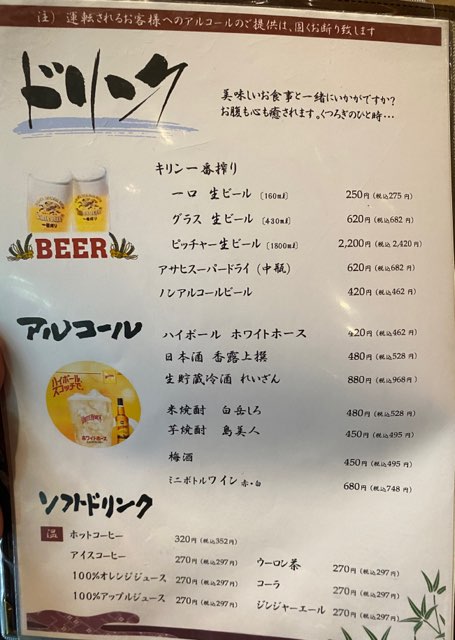 注） 運転されるお客様へのアルコールのご提供は、固くお断り致します
ドリンク
美味しいお食事と一緒にいかがですか?
お腹も心も癒されます。くつろぎのひと時…
キリン一番搾り
一口 生ビール（160㎖） 250円（税込275円）
グラス 生ビール（430㎖） 620円（税込682円）
ピッチャー生ビール（1800㎖） 2,200円（税込2,420円）
BEER
アサヒスーパードライ（中瓶） 620円（税込682円）
ノンアルコールビール 420円（税込462円）
アルコール
ハイボール ホワイトホース 420円（税込462円）
日本酒 香露上撰 480円（税込528円）
生貯蔵冷酒 れいざん 880円（税込968円）
ハイボール
スコッチで。
ホワイトホース
米焼酎 白岳しろ 480円（税込528円）
芋焼酎 島美人 450円（税込495円）
梅酒 450円（税込495円）
ミニボトルワイン 赤・白 680円（税込748円）
ソフトドリンク
温 ホットコーヒー 320円（税込352円）
アイスコーヒー 270円（税込297円） ウーロン茶 270円（税込297円）
100%オレンジジュース 270円（税込297円） コーラ 270円（税込297円）
100%アップルジュース 270円（税込297円） ジンジャーエール 270円（税込297円）